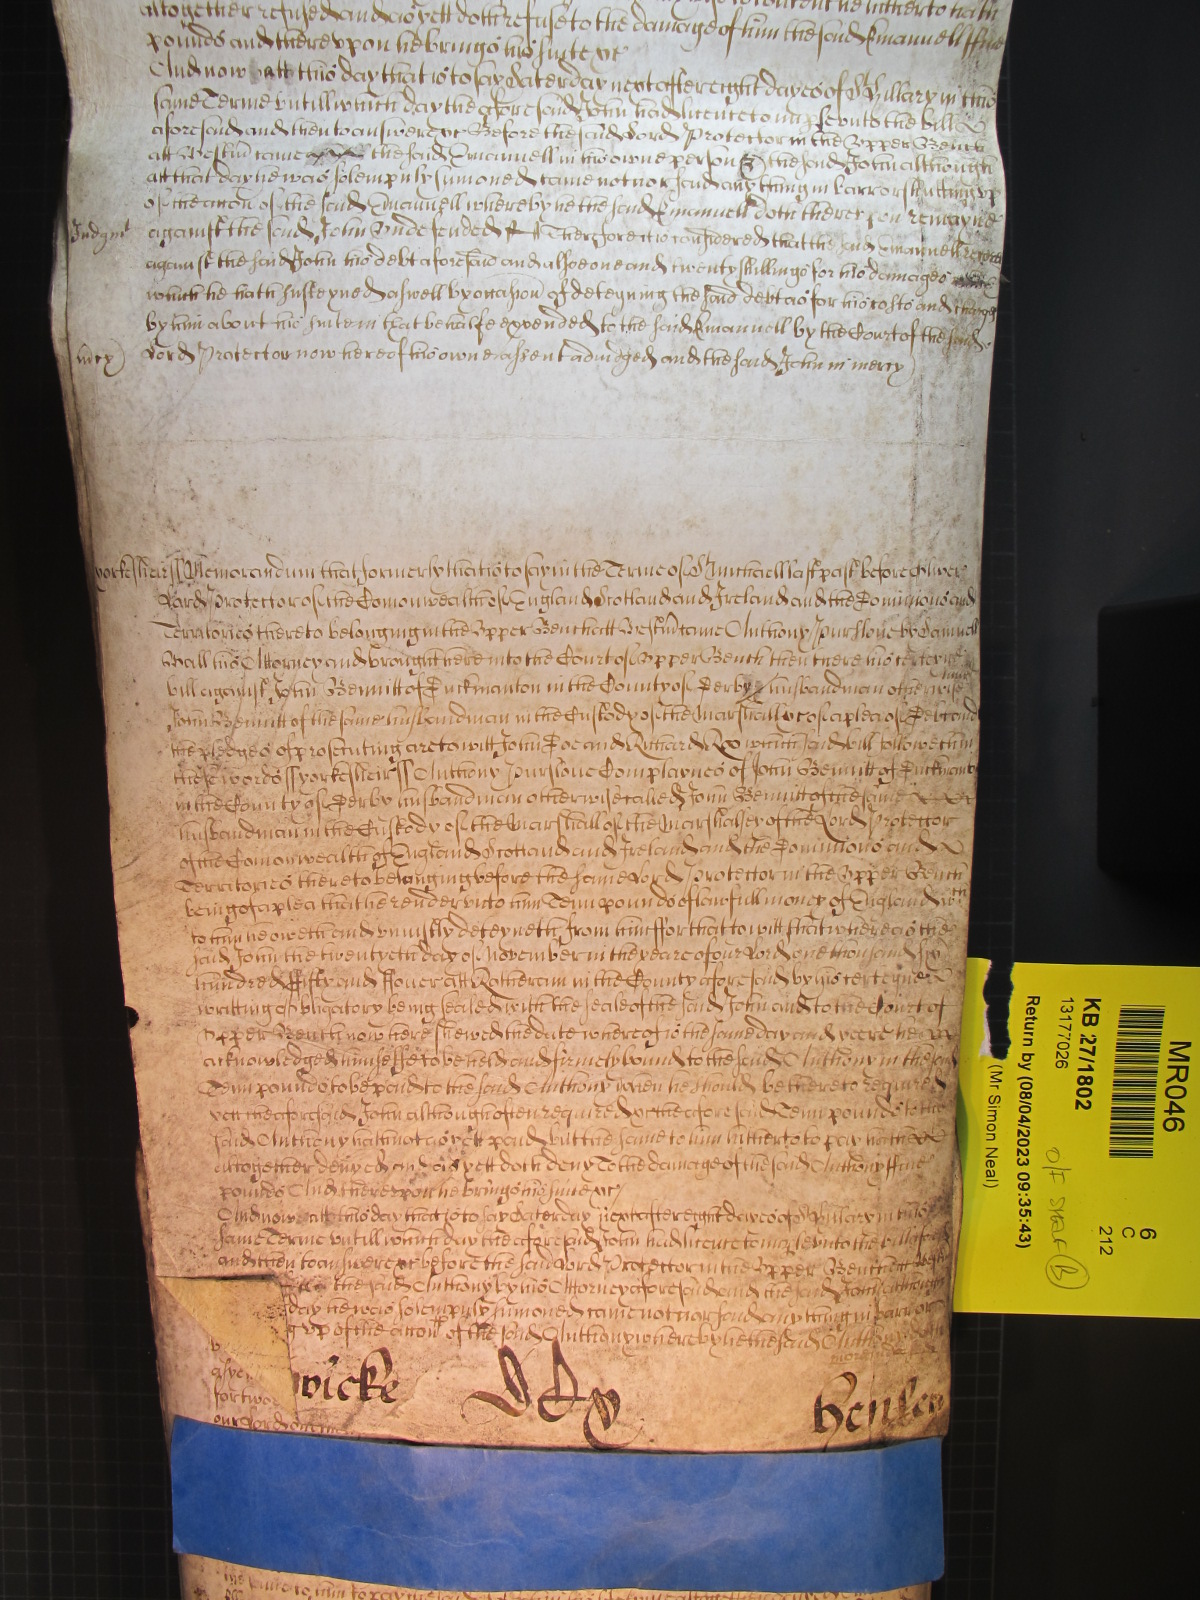 altogether refused and as yett doth refuse to the damage of him the said Emanuell ffive
pounds and thereupon he brings his suite &c
And now att this day that is to say Saterday next after eight dayes of St Hillary in this
same Terme untill which day the aforesaid John had licence to imparle unto the bill
aforesaid and then to answere &c Before the said Lord Protector in the Upper Bench
att Westm came the said Emanuell in his owne person & the said John although
att that day he was solempnly sumoned came not nor said any thing in barr or
of the accon of the said Emanuell whereby he the said Emanuell doth thereupon remayne
Judgmt against the said John Undefended Therefore it is considered that the said Emanuell
against the said John his debt aforesaid and alsoe one and twenty shillings for his damages
which he hath susteyned aswell by occasion of deteyning the said debt as for his costs and charges
by him about his suite in that behalfe expended to the said Emanuell by the Court of the said
mcy) Lord Protector now here of his owne assent adiudged and the said John in mercy)
yorkesheir ss Memorandum that formerly that is to say in the Terme of St Michaell last past before Oliver
Lord Protector of the Comonwealth of England Scotland and Ireland and the Dominions and
Territories thereto belonging in the Upper Bench att Westm came Anthony Purslove by Samuell
Ball his Attorney and brought here into the Court of Upper Bench then there his certeyne
bill against John Bennitt of Duckmanton in the County of Derby husbandman otherwise
John Bennitt of the same husbandman in the Custody of the Marshall &c of a plea of Debt and
the pledges of prosecuting are to witt John Doe and Richard Roo which said bill followeth in
these words ss yorkesheir ss Anthony Purslove Complaynes of John Bennitt of
in the County of Derby husbandman otherwise called John Bennitt of the same
husbandman in the Custody of the Marshall of the Marshalsey of the Lord Protector
of the Comonwealth of England Scotland and Ireland and the Dominions and
Territories thereto belonging before the same Lord Protector in the Upper Bench
being of a plea that he render unto him Tenn pounds of lawfull money of England wch
to him he oweth and uniustly deteyneth from him ffor that to witt that whereas the
said John the twentyeth day of November in the yeare of our Lord one thousand six
hundred ffifty and ffower att Rotheram in the County aforesaid by his certeyne
writting obligatory being sealed with the seale of the said John and to the Court of
Upper Bench now here shewed the date whereof is the same day and yeere he
acknowledged himselfe to be held and firmely bound to the said Anthony in the said
Tenn pounds to be paid to the said Anthony when he should be thereto required
yett the aforesaid John although often required &c the aforesaid Tenn pounds to the
said Anthony hath not as yett paid but the same to him hitherto to pay hath
altogether denyed and as yett doth deny To the damage of the said Anthony ffive
pounds And thereupon he brings his suite &c
And now att this day that is to say Saterday next after eight dayes of St Hillary in this
same Terme untill which day the aforesaid John had licence to imparle unto the bill aforesaid
and then to answere &c before the said Lord Protector in the Upper Bench att Westm
the said Anthony by his Attorney aforesaid and the said John although
day he was solempnly sumoned came not nor said any thing in barr or
g up of the accon of the said Anthony whereby he the said Anthony doth
wicke
our Lord
MR046
KB 27/1802
13177026
Return by (08/04/2023 09:35:43)
(Mr Simon Neal)
6
C
212
O/F SHELF (B)